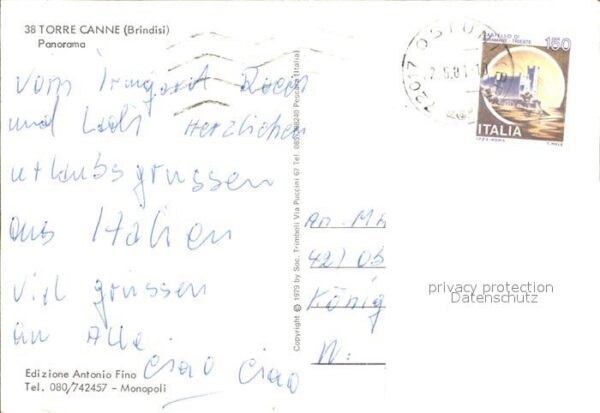 38 TORRE CANNE (Brindisi)
Panorama
Vom Irmgard
und Ladi Herzlichen
urlaubsgrüssen
aus Italien
viel grüssen
an Alle
Ciao Ciao
Edizione Antonio Fino
Tel. 080/742457 - Monopoli
Copyright © 1979 by Soc. Trimboli Via Puccini 67 Tel. 085/ Pescara (Italia)
72017 OSTUNI
CASTELLO DI
MIRAMARE TRIESTE
150
ITALIA
I.P.Z.S. ROMA
An. MA
König
N:
privacy protection
Datenschutz